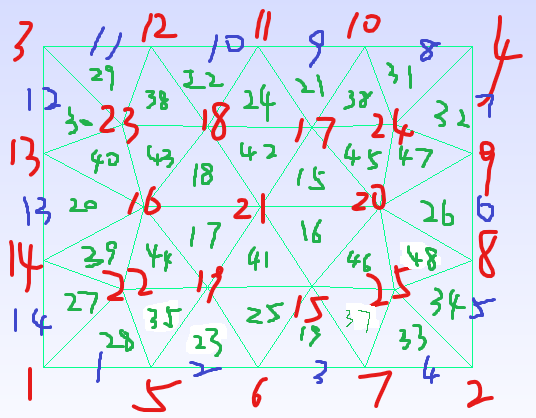 3 11 12 10 11 9 10 8 4
29 22 21 31
12 38 24 38 7
30 23 18 17 24 32
13 40 43 42 45 47 9
18 15
13 20 16 21 20 26 6
17 16
14 39 44 41 46 48 8
22 19 25
27 35 25 15 37 34 5
14 28 23 19 33
1 1 5 2 6 3 7 4 2